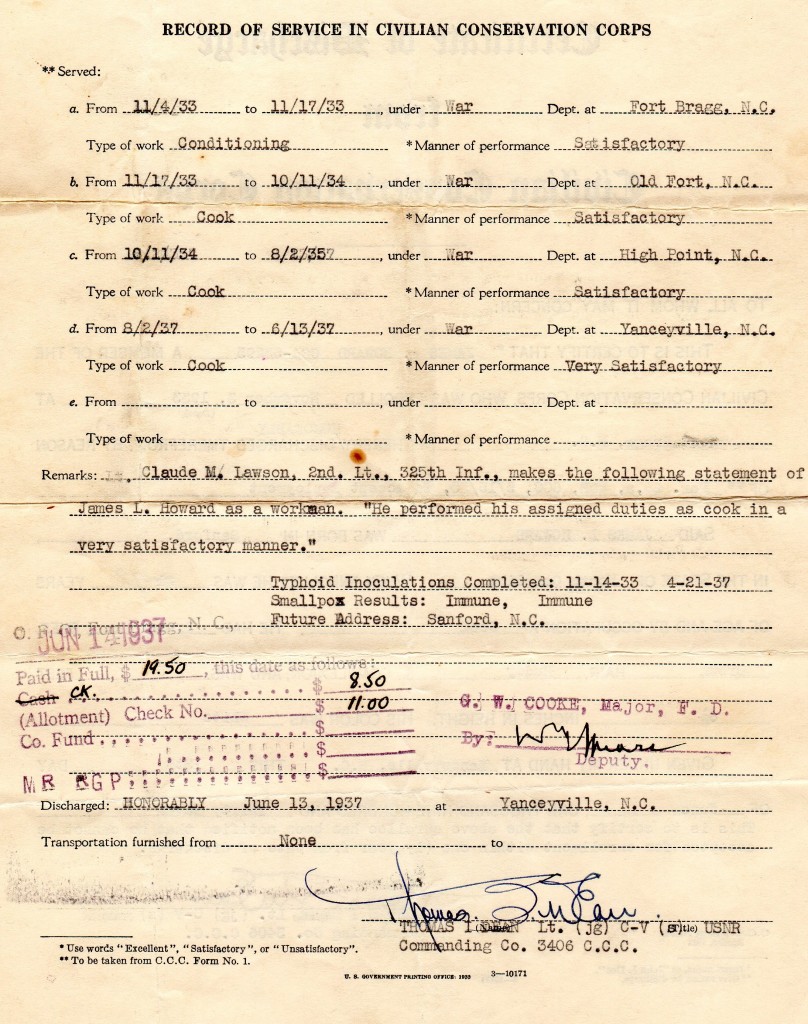 RECORD OF SERVICE IN CIVILIAN CONSERVATION CORPS
** Served:
a. From 11/4/33 to 11/17/33, under War Dept. at Fort Bragg, N.C.
Type of work Conditioning * Manner of performance Satisfactory
b. From 11/17/33 to 10/11/34, under War Dept. at Old Fort, N.C.
Type of work Cook * Manner of performance Satisfactory
c. From 10/11/34 to 8/2/357, under War Dept. at High Point, N.C.
Type of work Cook * Manner of performance Satisfactory
d. From 8/2/37 to 6/13/37, under War Dept. at Yanceyville, N.C.
Type of work Cook * Manner of performance Very Satisfactory
e. From to , under Dept. at
Type of work * Manner of performance
Remarks: Claude M. Lawson, 2nd. Lt., 325th Inf., makes the following statement of
James L. Howard as a workman. "He performed his assigned duties as cook in a
very satisfactory manner."
Typhoid Inoculations Completed: 11-14-33 4-21-37
Smallpox Results: Immune, Immune
Future Address: Sanford, N.C.
N. C.,
JUN 14 1937
Paid in Full, $ 19.50, this date as follows:
Cash CK. $ 8.50
(Allotment) Check No. $ 11.00
Co. Fund $
$
$
G. W. COOKE, Major, F. D.
By:
Deputy.
Discharged: HONORABLY June 13, 1937 at Yanceyville, N.C.
Transportation furnished from None to
THOMAS Lt. (jg) C-V USNR
Commanding Co. 3406 C.C.C.
* Use words "Excellent", "Satisfactory", or "Unsatisfactory".
** To be taken from C.C.C. Form No. 1.
U. S. GOVERNMENT PRINTING OFFICE: 1933 3—10171